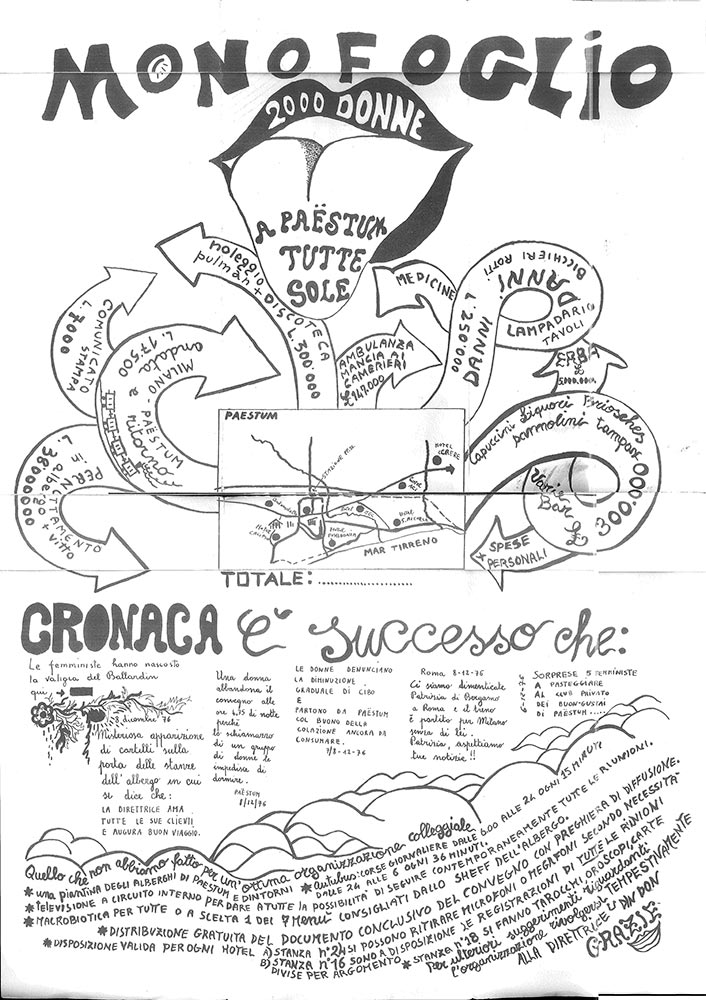 MONOFOGLIO
2000 DONNE
A PAËSTUM
TUTTE
SOLE
noleggio
pulman + DISCOTECA
L. 300.000
MEDICINE
BICCHIERI ROTTI
DANNI
LAMPADARIO
TAVOLI
L. 250.000
DANNI
COMUNICATO
STAMPA
L. 7000
MILANO - PAËSTUM
andata e ritorno
L. 17500
AMBULANZA
MANCIA AI
CAMERIERI
£ 147.000
ERBA
£
5.000.000
Capuccini Liquori Briosches
pannolini tampax
Varie
Bar £
300.000
PERNOTTAMENTO
IE albergo + vitto
L. 38000000
SPESE
PERSONALI
PAESTUM
STAZIONE
HOTEL
CERERE
MAR TIRRENO
TOTALE:......................
CRONACA è successo che:
Le femministe hanno nascosto
la valigia del Ballardin
qui →
8 dicembre 76
Misteriosa apparizione
di cartelli sulla
porta delle stanze
dell'albergo in cui
si dice che:
LA DIRETTRICE AMA
TUTTE LE SUE CLIENTI
E AUGURA BUON VIAGGIO.
Una donna
abbandona il
convegno alle
ore 4,15 di notte
perché
lo schiamazzo
di un gruppo
di donne le
impedisce di
dormire.
PAËSTUM
8/12/76
LE DONNE DENUNCIANO
LA DIMINUZIONE
GRADUALE DI CIBO
E
PARTONO DA PAËSTUM
COL BUONO DELLA
COLAZIONE ANCORA DA
CONSUMARE.
7/8-12-76
Roma 8-12-76
Ci siamo dimenticate
Patrizia di Bergamo
a Roma e il treno
è partito per Milano
senza di lei.
Patrizia, aspettiamo
tue notizie!!
SORPRESE 5 FEMMINISTE
A PASTEGGIARE
AL CLUB PRIVATO
DEI BUON-GUSTAI
DI PAËSTUM.....
Quello che non abbiamo fatto per un'ottima organizzazione collegiale
* una piantina DEGLI ALBERGHI DI PAËSTUM E DINTORNI
* Autobus: CORSE GIORNALIERE DALLE 6.00 ALLE 24 OGNI 15 MINUTI
DALLE 24 ALLE 6 OGNI 36 MINUTI.
* TELEVISIONE A CIRCUITO INTERNO PER DARE A TUTTE LA POSSIBILITÀ DI SEGUIRE CONTEMPORANEAMENTE TUTTE LE RIUNIONI.
* MACROBIOTICA PER TUTTE O A SCELTA 1 DEI 7 Menù CONSIGLIATI DALLO SHEFF DELL'ALBERGO.
* DISTRIBUZIONE GRATUITA DEL DOCUMENTO CONCLUSIVO DEL CONVEGNO CON PREGHIERA DI DIFFUSIONE.
* DISPOSIZIONE VALIDA PER OGNI HOTEL A) STANZA n° 24 SI POSSONO RITIRARE MICROFONI O MEGAFONI SECONDO NECESSITÀ
B) STANZA n° 16 SONO A DISPOSIZIONE LE REGISTRAZIONI DI TUTTE LE RIUNIONI
DIVISE PER ARGOMENTO * STANZA n° 18 SI FANNO TAROCCHI, OROSCOPI, CARTE
Per ulteriori suggerimenti riguardanti
l'organizzazione rivolgersi TEMPESTIVAMENTE
ALLA DIRETTRICE DIN DON
GRAZIE